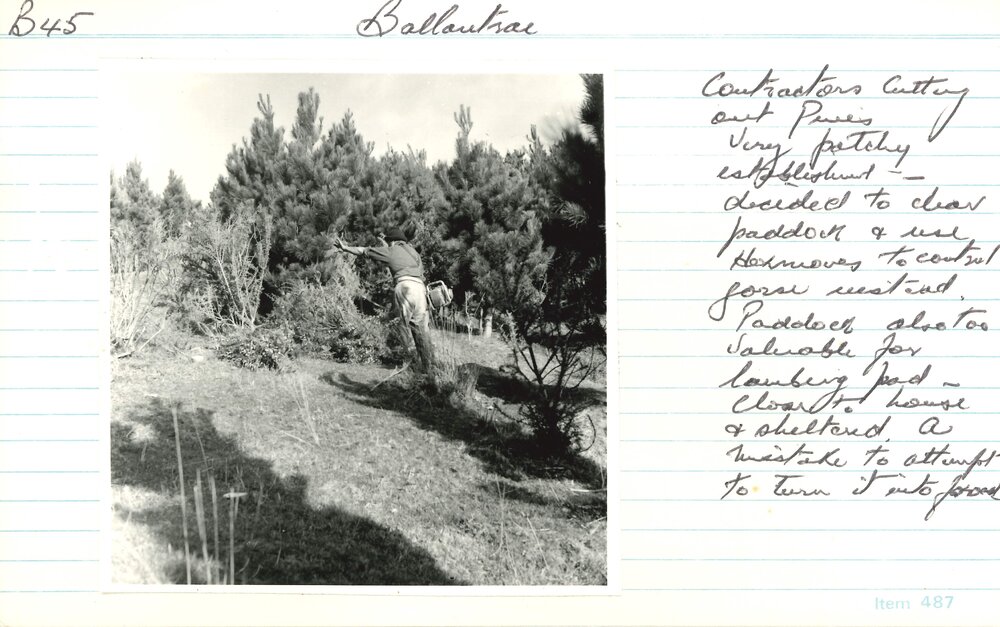 B45
Ballantrae
Contractors Cutting
out Pines
Very patchy
establishment -
decided to clear
paddock & use
to control
gorse instead.
Paddock also too
valuable for
lambing pad -
close to house
& sheltered. A
mistake to attempt
to turn it into
Item 487